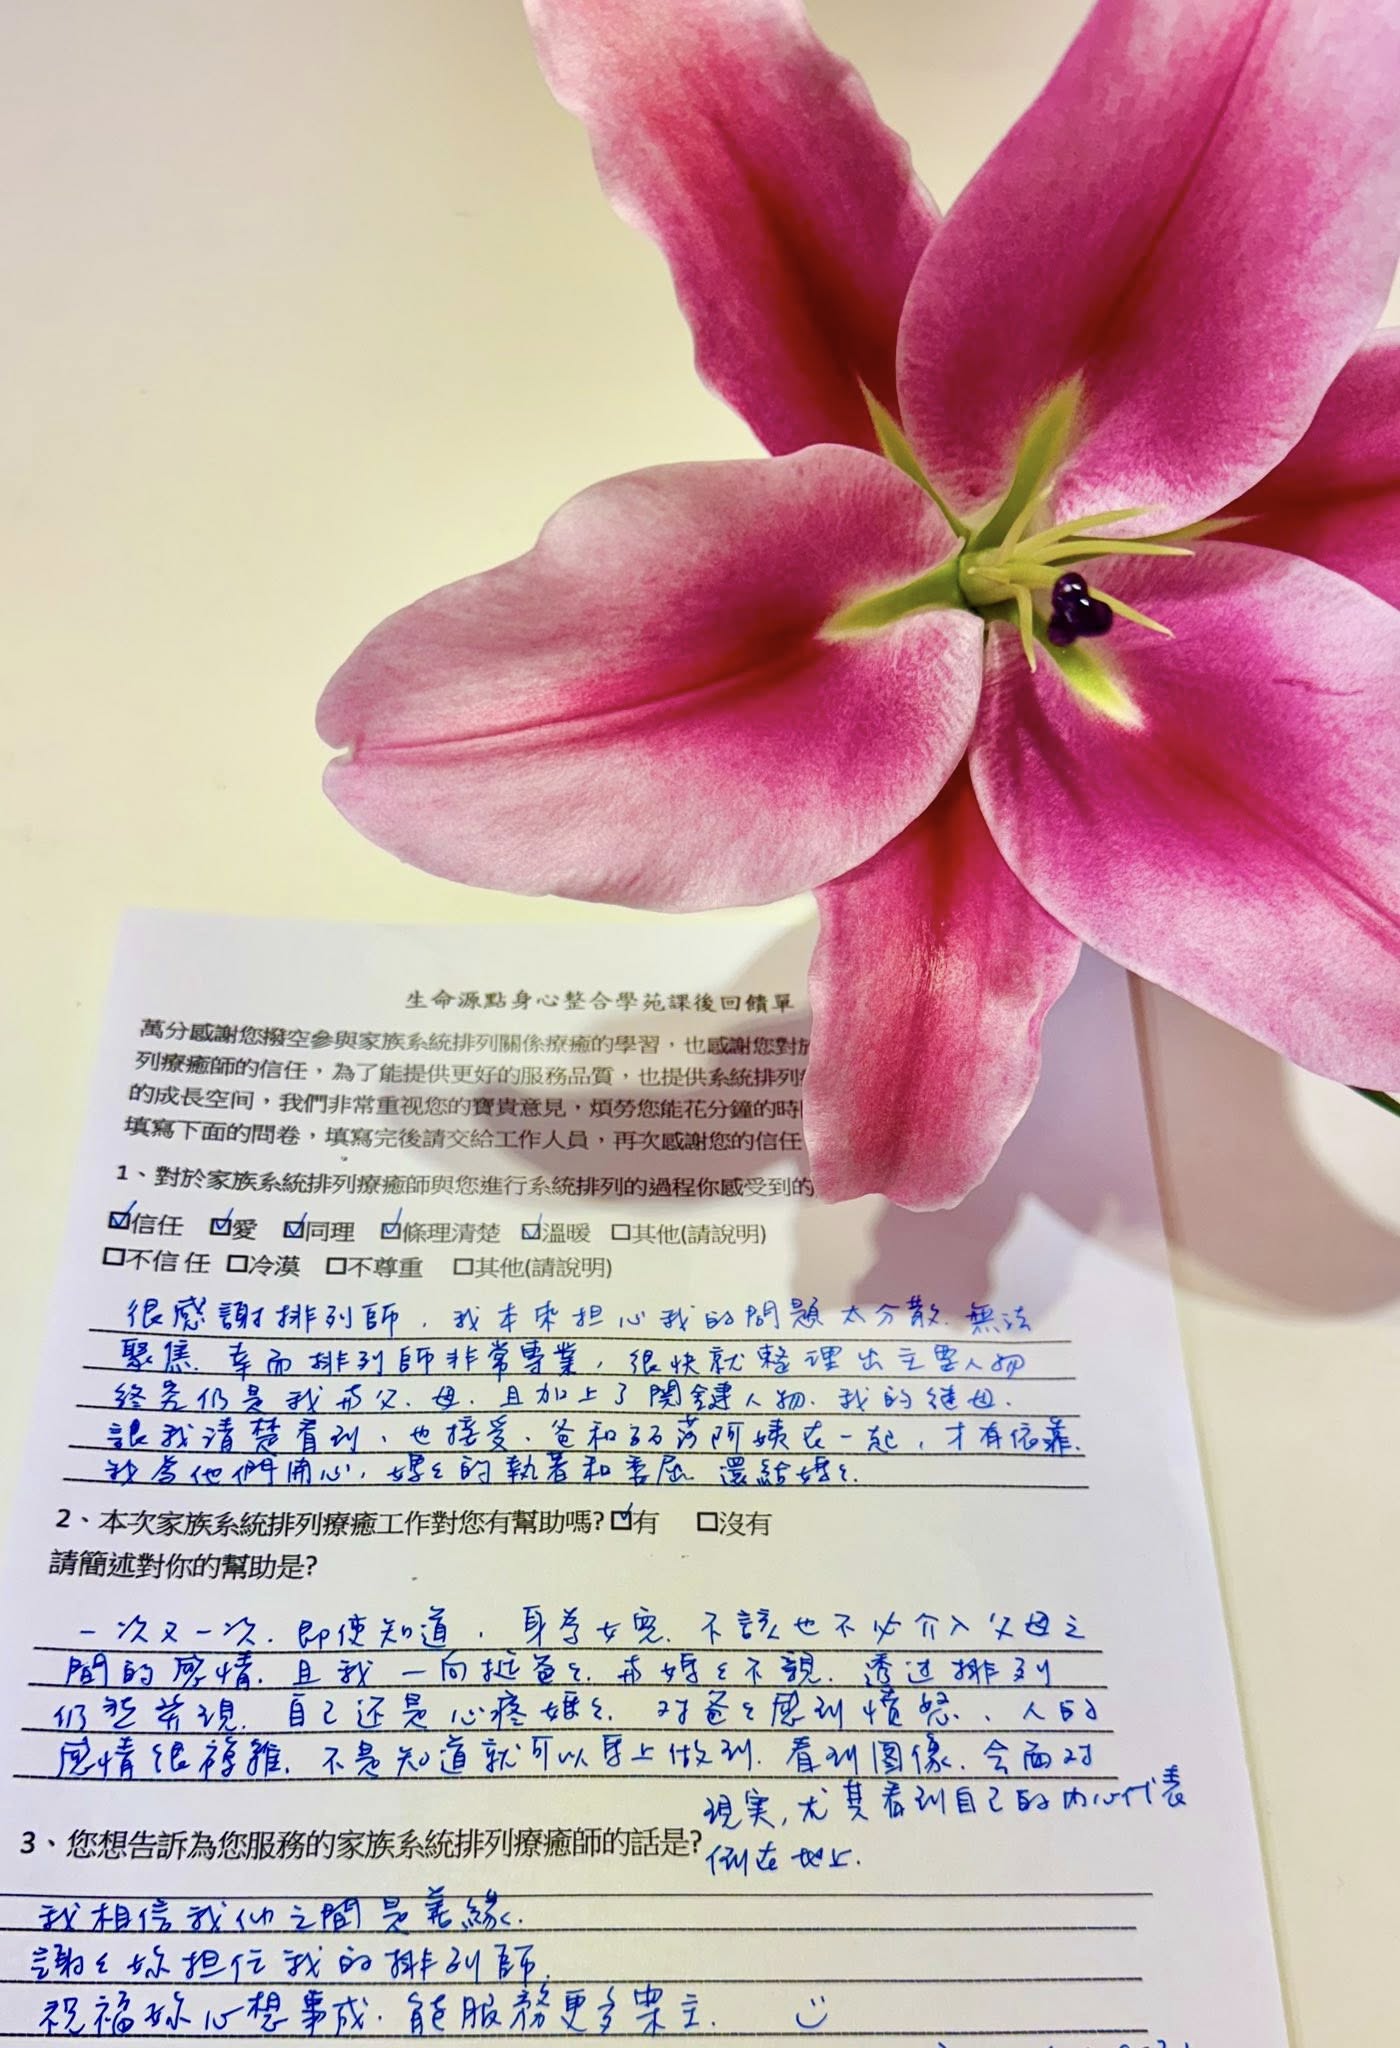 生命源點身心整合學苑課後回饋單
萬分感謝您撥空參與家族系統排列關係療癒的學習，也感謝您對於
列療癒師的信任，為了能提供更好的服務品質，也提供系統排列
的成長空间，我們非常重视您的寶貴意見，煩勞您能花分鐘的時
填寫下面的問卷，填寫完後請交給工作人員，再次感謝您的信任
1、對於家族系統排列療癒師與您進行系統排列的過程你感受到的
☑信任 ☑愛 ☑同理 ☑條理清楚 ☑溫暖 □其他(請說明)
□不信 任 □冷漠 □不尊重 □其他(請說明)
很感謝排列師，我本來担心我的問題太分散.無法
聚焦.幸而排列師非常專業，很快就整理出主要人物
終究仍是我與父.母.且加上了関鍵人物.我的继母.
讓我清楚看到、也接受、爸和阿姨在一起，才有依靠.
我為他們開心，媽々的執著和委屈 還給媽々.
2、本次家族系統排列療癒工作對您有幫助嗎?☑有 □沒有
請簡述對你的幫助是?
一次又一次.即使知道，身為女兒.不該也不必介入父母之
間的感情.且我一向挺爸々.與媽々不親.透过排列
仍然發現.自己还是心疼媽々.对爸々感到憤怒、人的
感情很複雜.不是知道就可以馬上做到.看到圖像.会面对
現実，尤其看到自己的内心代表
倒在地上.
3、您想告訴為您服務的家族系統排列療癒師的話是?
我相信我們之間是善緣.
謝々妳担任我的排列師.
祝福妳心想事成.能服務更多案主.